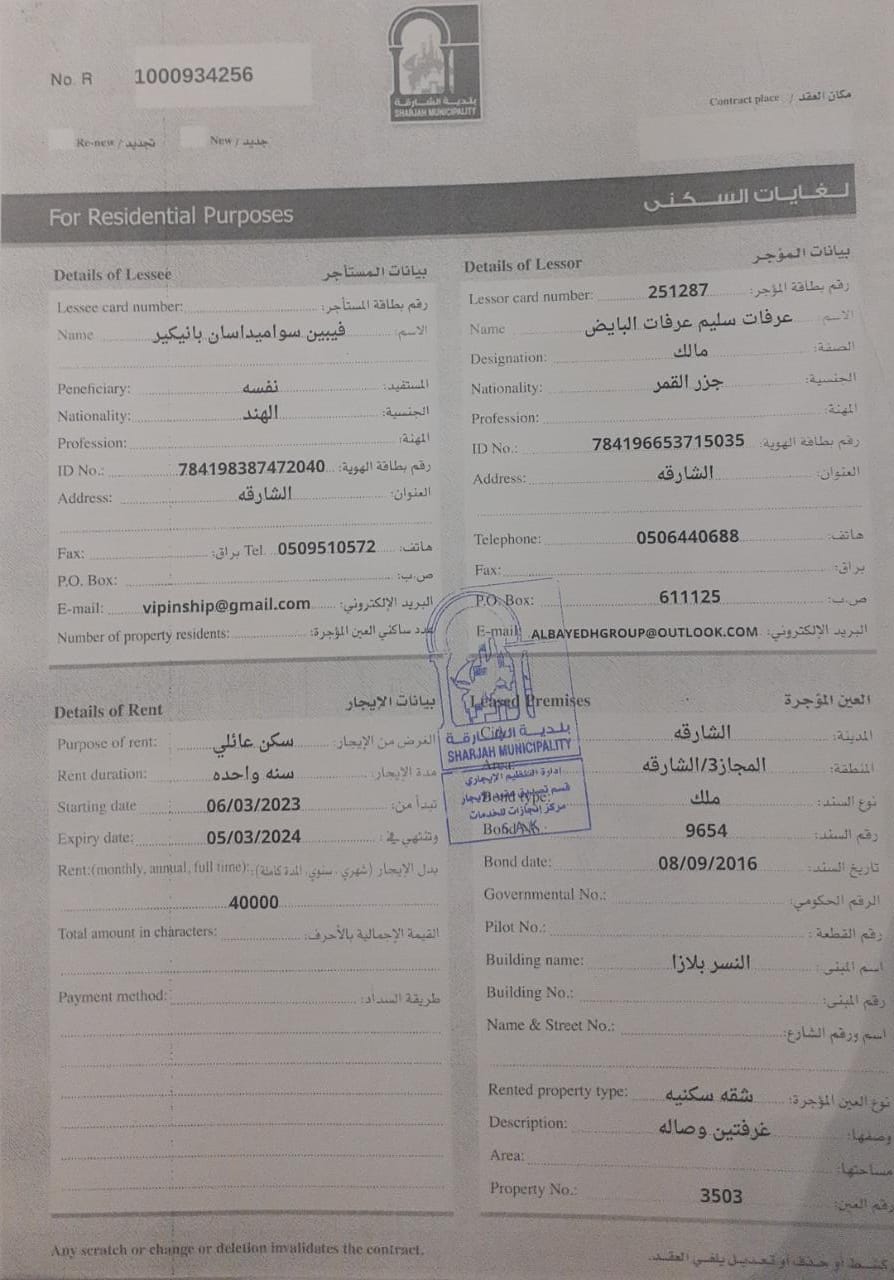 No. R 1000934256
بلدية الشارقة
SHARJAH MUNICIPALITY
Contract place / مكان العقد
Re-new / تجديد New / جديد
For Residential Purposes لغايات السكنى
Details of Lessee بيانات المستأجر
Lessee card number: رقم بطاقة المستأجر:
Name فيبين سواميداسان بانيكير الاسم:
Peneficiary: نفسه المستفيد:
Nationality: الهند الجنسية:
Profession: المهنة:
ID No.: 784198387472040 رقم بطاقة الهوية:
Address: الشارقه العنوان:
Fax: براق: Tel. 0509510572 هاتف:
P.O. Box: ص.ب:
E-mail: vipinship@gmail.com البريد الإلكتروني:
Number of property residents: عدد ساكني العين المؤجرة:
Details of Lessor بيانات المؤجر
Lessor card number: 251287 رقم بطاقة المؤجر:
Name عرفات سليم عرفات البايض الاسم:
Designation: مالك الصفة:
Nationality: جزر القمر الجنسية:
Profession: المهنة:
ID No.: 784196653715035 رقم بطاقة الهوية:
Address: الشارقه العنوان:
Telephone: 0506440688 هاتف:
Fax: براق:
P.O. Box: 611125 ص.ب:
E-mail: ALBAYEDHGROUP@OUTLOOK.COM البريد الإلكتروني:
Details of Rent بيانات الإيجار
Purpose of rent: سكن عائلي الغرض من الإيجار:
Rent duration: سنه واحده مدة الإيجار:
Starting date 06/03/2023 تبدأ من:
Expiry date: 05/03/2024 وتنتهي في:
Rent:(monthly, annual, full time): بدل الإيجار (شهري . سنوي . المدة كاملة):
40000
Total amount in characters: القيمة الإجمالية بالأحرف:
Payment method: طريقة السداد:
Leased Premises العين المؤجرة
City: الشارقه المدينة:
Area: المجاز3/الشارقه المنطقة:
Bond type: ملك نوع السند:
Bond No.: 9654 رقم السند:
Bond date: 08/09/2016 تاريخ السند:
Governmental No.: الرقم الحكومي:
Pilot No.: رقم القطعة:
Building name: النسر بلازا اسم المبنى:
Building No.: رقم المبنى:
Name & Street No.: اسم ورقم الشارع:
Rented property type: شقه سكنيه نوع العين المؤجرة:
Description: غرفتين وصاله وصفها:
Area: مساحتها:
Property No.: 3503 رقم العين:
بلدية الشارقة
SHARJAH MUNICIPALITY
إدارة التنظيم الإيجاري
قسم تصديق عقود الإيجار
مركز إنجازات للخدمات
Any scratch or change or deletion invalidates the contract.
كشط أو حذف أو تعديل يلغي العقد.